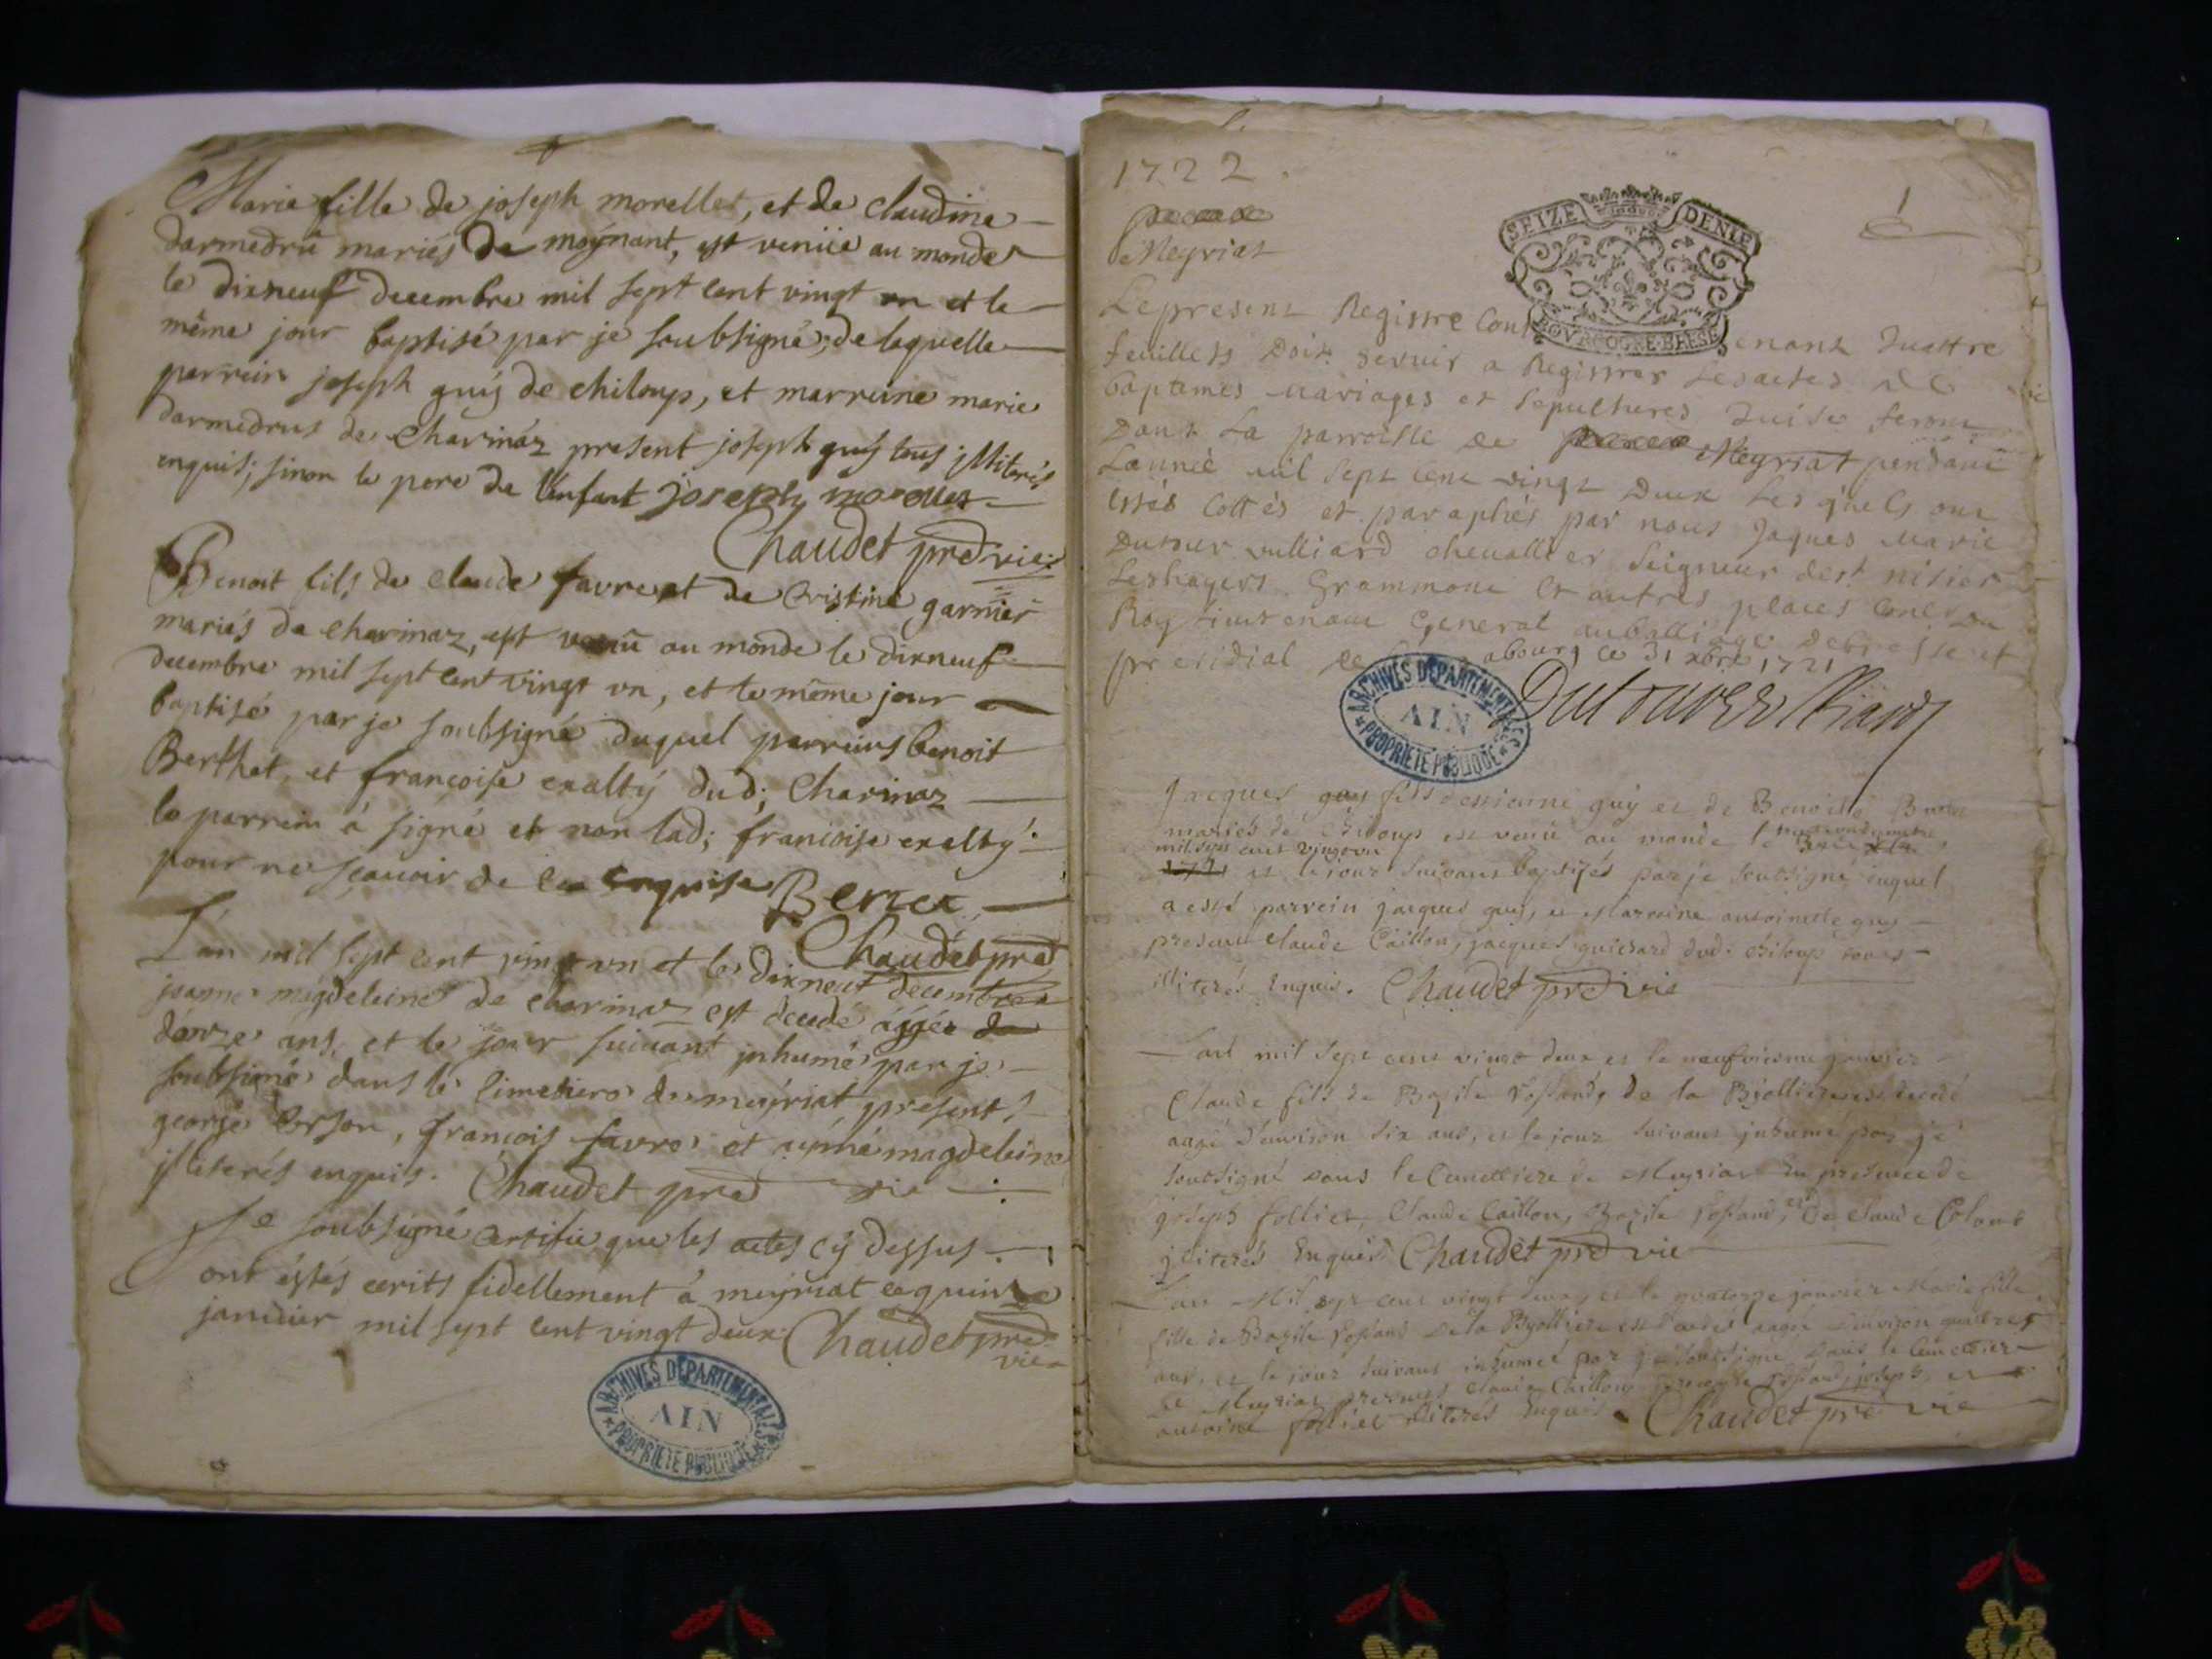 Marie fille de joseph morellet, et de claudine
darmedru mariés de moÿnant, est venüe au monde
le dixneuf decembre mil sept cent vingt vn et le
même jour baptisé par je soubsigné; de laquelle
parrein joseph guÿ de chiloup, et marreine marie
darmedrus de Charinaz present joseph guÿ tous jlliterés
enquis; sinon le pere de l'enfant joseph morellet
Chaudet pre vic:
Benoit fils de claude favre et de Cristine garnier
mariés de charinaz, est venü au monde le dixneuf
decembre mil sept cent vingt vn, et le même jour
baptisé par je soubsigné duquel parreins benoit
Berthet, et françoise exaltÿ dud; Charinaz
le parrein à signé et non lad; francoise exaltÿ
pour ne sçauoir de ce enquise Bertet
Chaudet pre
L'an mil sept cent vingt vn et le dixneuf decembre
jeanne magdeleine de charinaz est decedé âggée de
douze ans, et le jour suiuant jnhumé par je
soubsigné dans le Cimetiere de meyriat, present
george Berson, françois favre et aÿmé magdeleine
jlliterés enquis. Chaudet pre vic
Je soubsigné Certifie que les actes cÿ dessus
ont éstés ecrits fidellement à meyriat ce quinze
januier mil sept cent vingt deux Chaudet pre
vic
1722.
Meyriat
SEIZE DENIE
BOVRGOGNE-BRESSE
Le present Registre Contenant quattre
feuillets Doit seruir a Registrer les actes de
baptemes mariages et sepultures qui se feront
Dans La parroisse de Meyriat pendant
Lannée mil sept cent vingt Deux Les quels ont
estés Cottés et paraphés par nous Jaques Marie
Dutour vulliard cheuallier Seigneur de st nisier
Grammont et autres places Coner du
Roy Lieutenant General au balliage de bresse et
presidial de abourg ce 31 xbre 1721
Dutour
ARCHIVES DEPARTEMENTALES
AIN
PROPRIETE PUBLIQUE
Jacques guy fils d'estienne guÿ et de Benoitte
mariés de Chiloup est venü au monde le
mil sept cent vingt vn
1721 et le jour suiuant baptisés par je soubsigné duquel
a esté parrein jacques guy, et Marraine antoinette guy
present Claude Caillon, jacques guichard dud. chiloup tous
illiterés Enquis. Chaudet pre vic
Lan mil sept cent vingt deux et le neufuiesme januier
Claude fils de Bazile de la est decedé
aagé d'enuiron six ans, et le jour suiuant jnhumé par je
soubsigné Dans le Cimettiere de Meyriat En presence de
joseph follier, Claude Caillon, Bazile et de Claude Colomb
jlliterés Enquis Chaudet pre vic
Lan Mil sept cent vingt deux et le quatorze januier Marie fille
fille de Bazile De la est decedée aagée d'enuiron quatre
ans, et le jour suiuant inhumée par je soubsigné Dans le Cimettiere
De Meyriat presents Claude Caillon joseph et
antoine follier illiterés Enquis Chaudet pre vic
ARCHIVES DEPARTEMENTALES
AIN
PROPRIETE PUBLIQUE